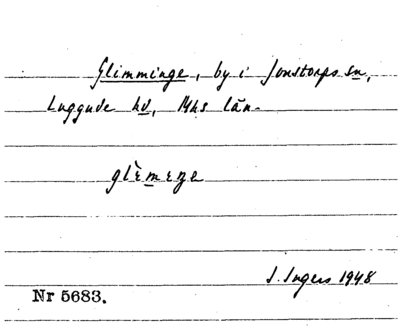 Glimminge, by i Jonstorps sn,
Luggude hd, Mhs län.
glìmeŋe
I. Ingers 1948
Nr 5683.